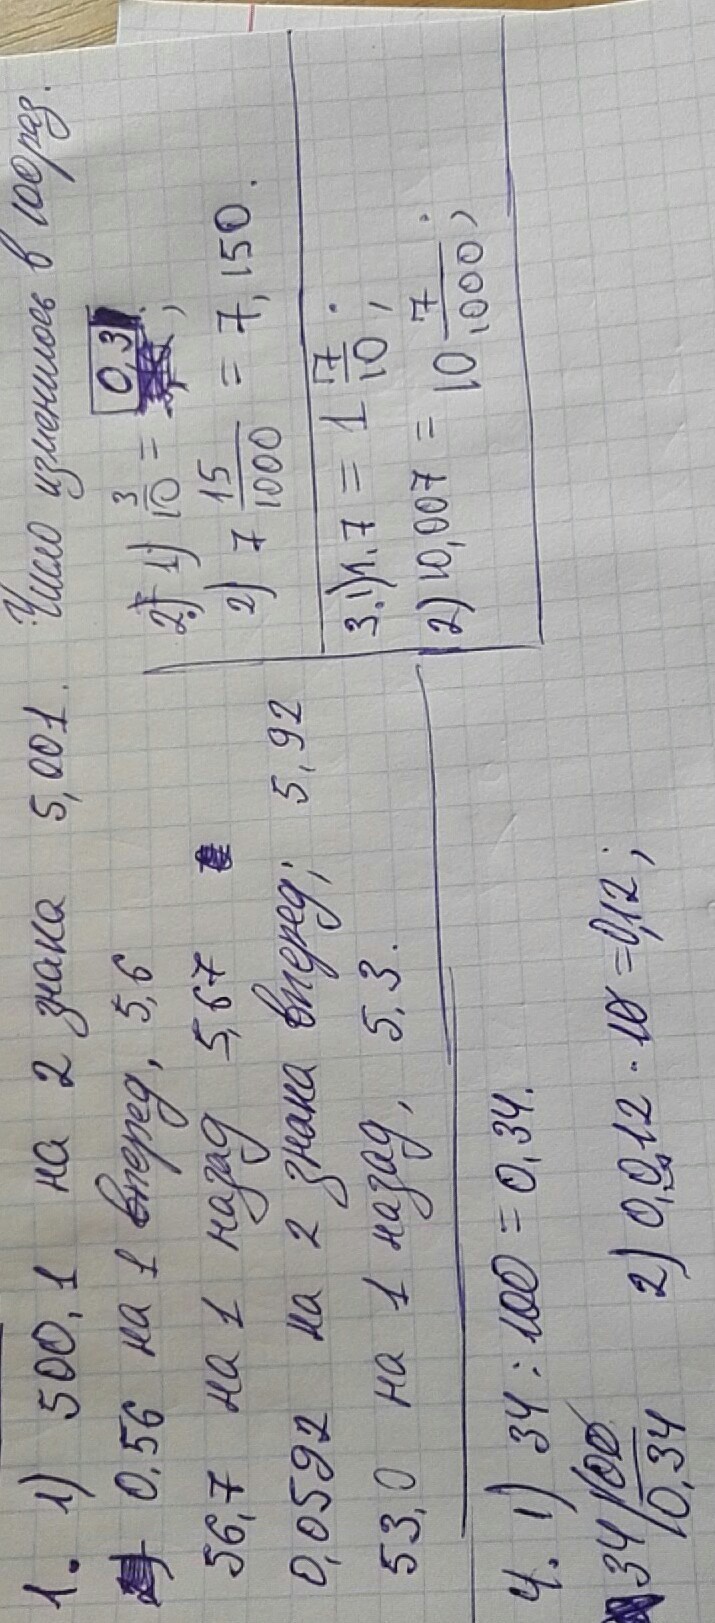 1. 1) 500,1 на 2 знака 5,001. Число изменилось в 100 раз.
0,56 на 1 вперед, 5,6
56,7 на 1 назад 5,67
0,0592 на 2 знака вперед; 5,92
53,0 на 1 назад, 5,3.
2. 1) 3/10 = 0,3;
2) 7 15/1000 = 7,150.
3. 1) 1,7 = 1 7/10;
2) 10,007 = 10 7/1000;
4. 1) 34 : 100 = 0,34.
34/100
0,34
2) 0,012 · 10 = 0,12;